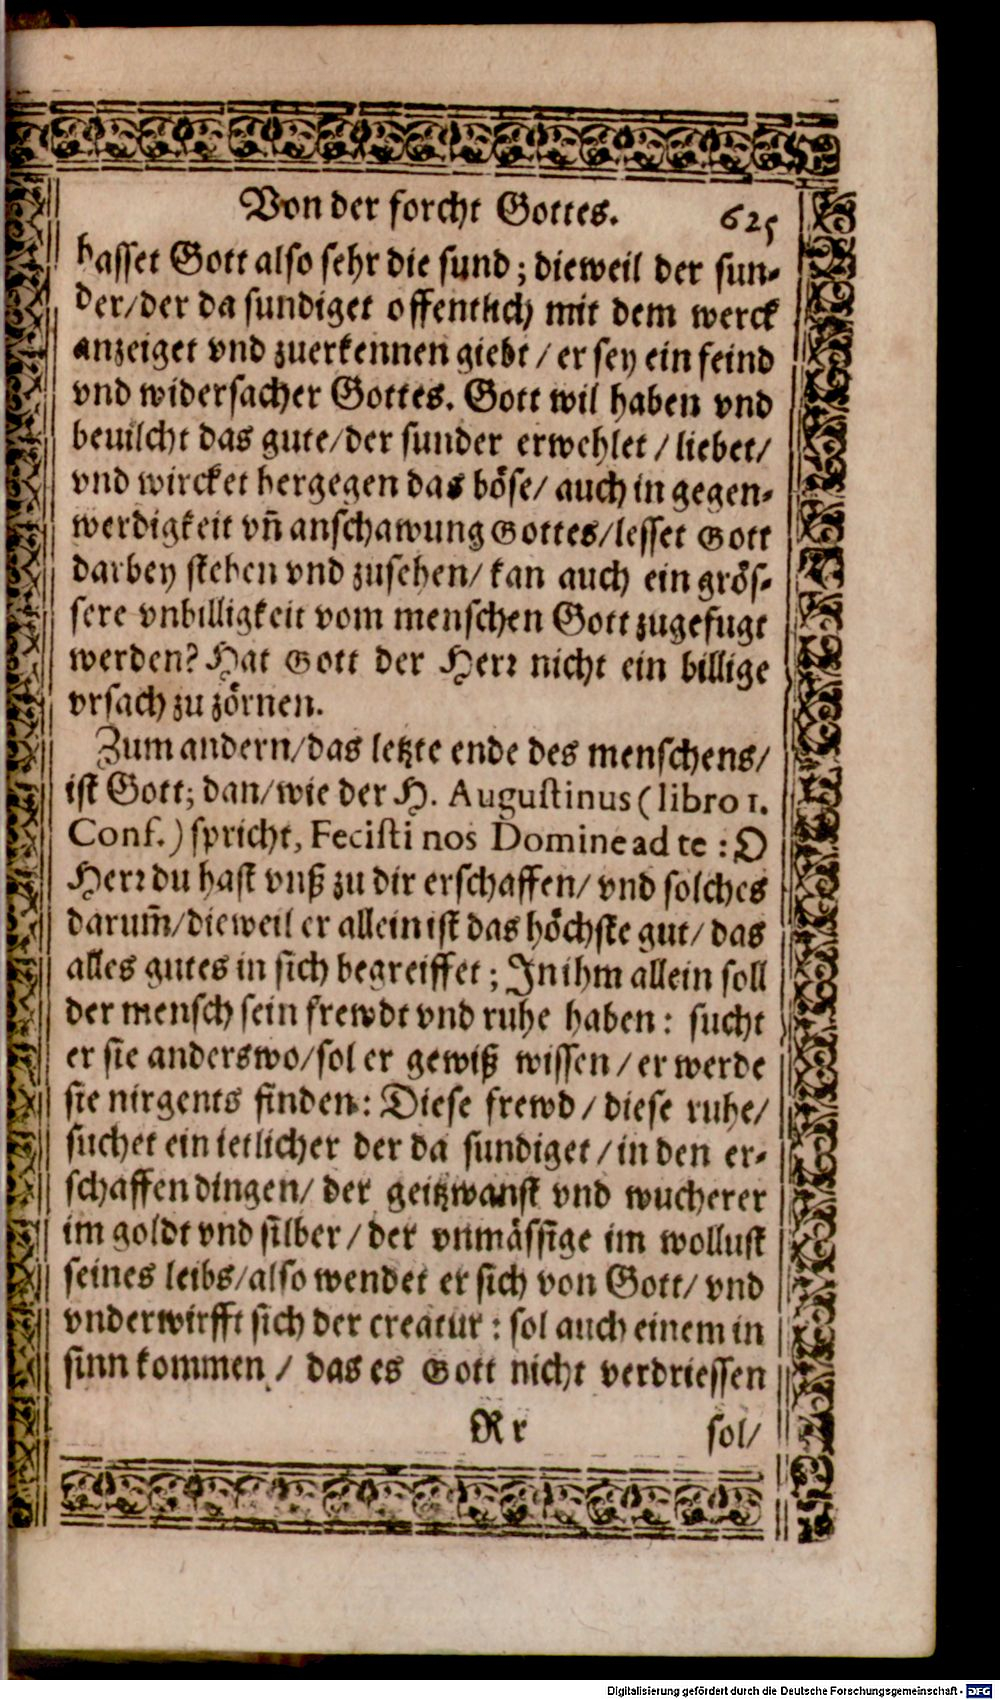 Von der forcht Gottes. 625
hasset Gott also sehr die sund; dieweil der sun-
der/der da sundiget offentlich mit dem werck
anzeiget vnd zuerkennen giebt / er sey ein feind
vnd widersacher Gottes. Gott wil haben vnd
beuilcht das gute/der sunder erwehlet / liebet/
vnd wircket hergegen das böse/ auch in gegen-
werdigkeit vñ anschawung Gottes/lesset Gott
darbey stehen vnd zusehen/ kan auch ein grös-
sere vnbilligkeit vom menschen Gott zugefugt
werden? Hat Gott der Herr nicht ein billige
vrsach zu zörnen.
Zum andern/das letzte ende des menschens/
ist Gott; dan/wie der H. Augustinus (libro 1.
Conf.) spricht, Fecisti nos Domine ad te : O
Herr du hast vnß zu dir erschaffen/ vnd solches
darum̃/dieweil er allein ist das höchste gut/ das
alles gutes in sich begreiffet; In ihm allein soll
der mensch sein frewdt vnd ruhe haben: sucht
er sie anderswo/sol er gewiß wissen / er werde
sie nirgents finden: Diese frewd / diese ruhe/
suchet ein ietlicher der da sundiget / in den er-
schaffen dingen/ der geitzwanst vnd wucherer
im goldt vnd silber / der vnmässige im wollust
seines leibs/also wendet er sich von Gott/ vnd
vnderwirfft sich der creatur: sol auch einem in
sinn kommen / das es Gott nicht verdriessen
Rr sol/
Digitalisierung gefördert durch die Deutsche Forschungsgemeinschaft - DFG